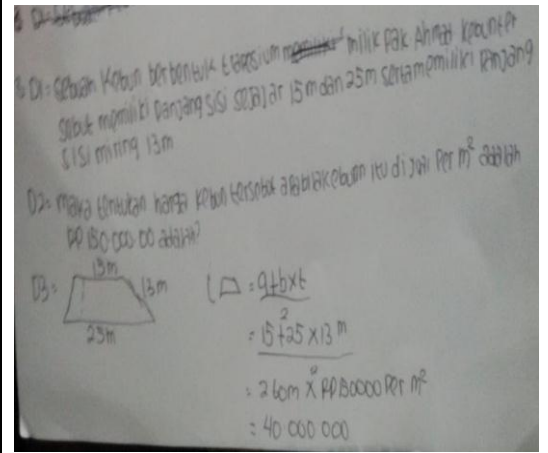 8 D1 = Sebuah Kebun berbentuk trapesium milik Pak Ahmad Kebun ter
sebut memiliki panjang sisi sejajar 15m dan 25m serta memiliki panjang
sisi miring 13m
D2 = maka tentukan harga kebun tersebut apabila kebun itu di jual Per m² adalah
RP 150 000 00 adalah?
D3 =
15m
13m
25m
L = a+b×t
2
= 15+25×13 m
2
= 260m × RP 150000 Per m²
= 40 000 000